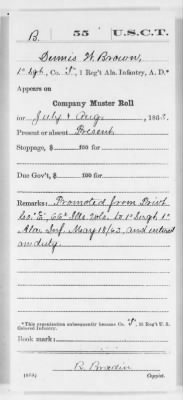 B. 55 U.S.C.T.
Dennis W. Brown,
1" Sgt, Co. I, 1 Reg't Ala. Infantry, A. D.*
Appears on
Company Muster Roll
for July & Aug, 1863.
Present or absent Present
Stoppage, $ 100 for
Due Gov't, $ 100 for
Remarks: Promoted from Privt
Co. "E", 66" Ills. Vols. to 1" Sergt 1"
Ala. Inf. May 18/63, and entered
on duty.
*This organization subsequently became Co. I, 55 Reg't U. S.
Colored Infantry.
Book mark:
(858)
Copyist.